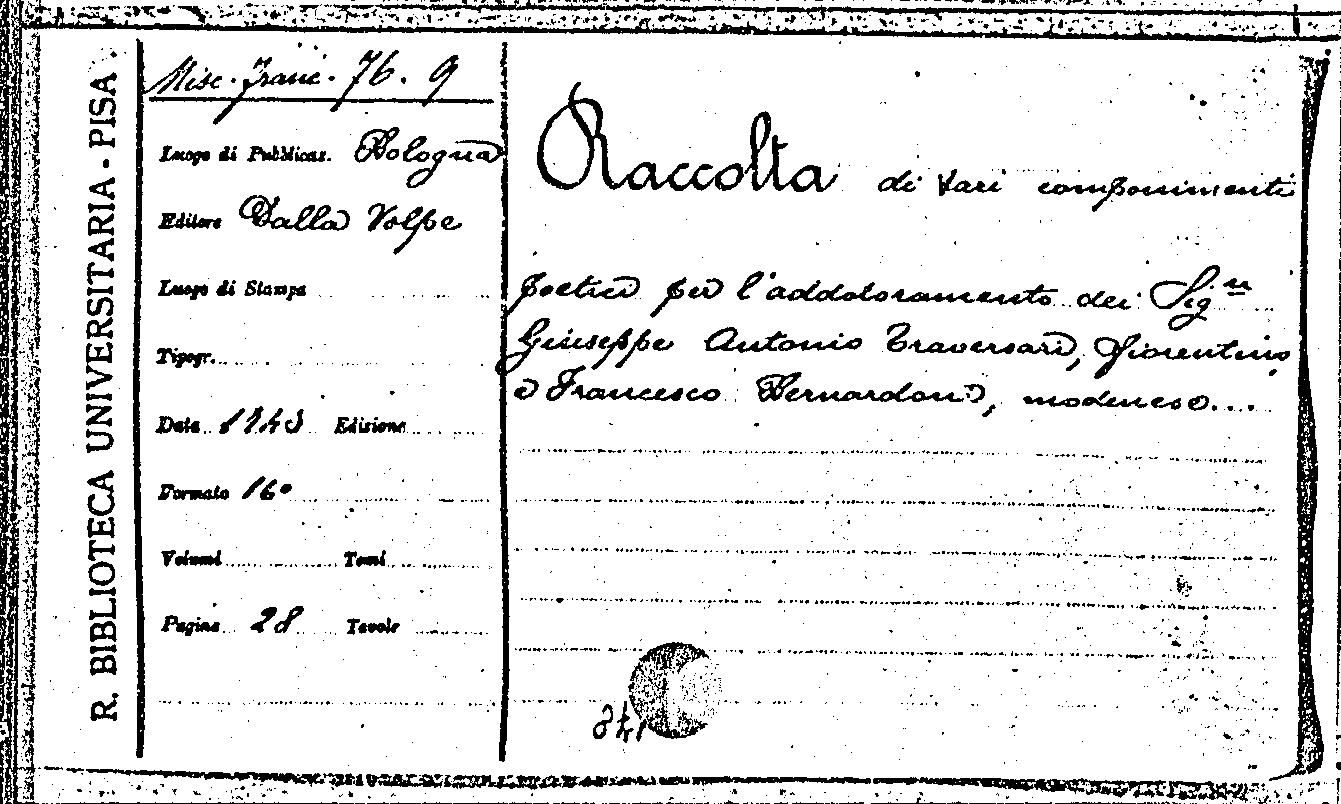 R. BIBLIOTECA UNIVERSITARIA - PISA.
Misc. Franc. 76. 9
Luogo di Pubblicaz. Bologna
Editore Dalla Volpe
Luogo di Stampa
Tipogr.
Data 1743 Edizione
Formato 16°
Volumi Tomi
Pagine 28 Tavole
Raccolta di vari componimenti
poetici per l'addottoramento dei Sig.ri
Giuseppe Antonio Traversari, fiorentino,
e Francesco Bernardoni, modenese...